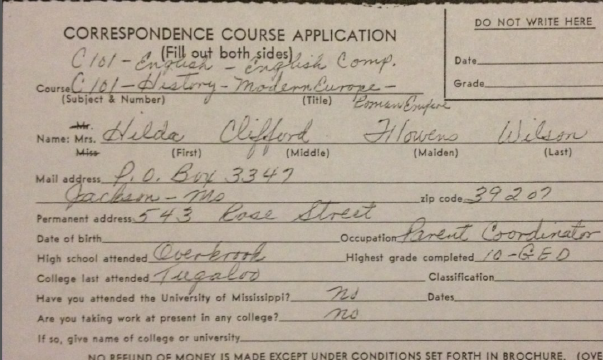 CORRESPONDENCE COURSE APPLICATION
DO NOT WRITE HERE
(Fill out both sides)
C 101 - English - English Comp.
Date
Course C 101 - History - Modern Europe -
Grade
(Subject & Number) (Title) Roman Empire
Mr.
Name: Mrs. Hilda Clifford Flowers Wilson
Miss (First) (Middle) (Maiden) (Last)
Mail address P.O. Box 3347
Jackson - Ms zip code 39207
Permanent address 543 Rose Street
Date of birth Occupation Parent Coordinator
High school attended Overbrook Highest grade completed 10-GED
College last attended Tugaloo Classification
Have you attended the University of Mississippi? no Dates
Are you taking work at present in any college? no
If so, give name of college or university
NO REFUND OF MONEY IS MADE EXCEPT UNDER CONDITIONS SET FORTH IN BROCHURE. (OVE